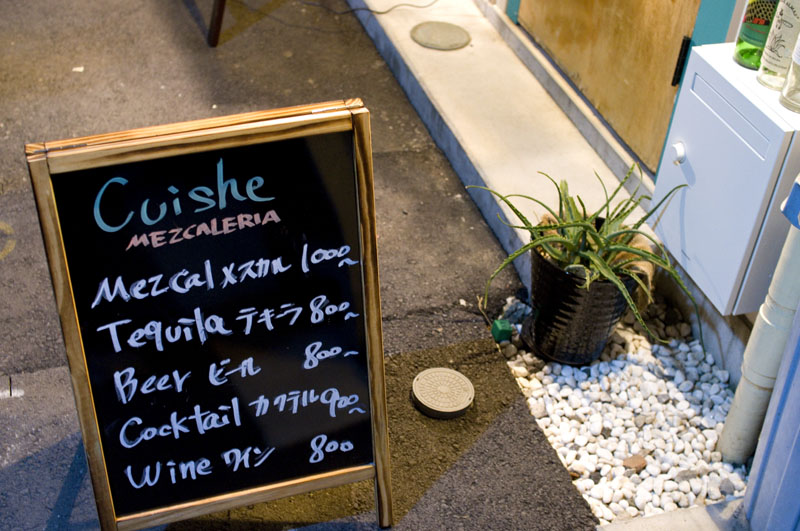 Cuishe
MEZCALERIA
Mezcal メスカル 1000~
Tequila テキーラ 800~
Beer ビール 800~
Cocktail カクテル 900~
Wine ワイン 800